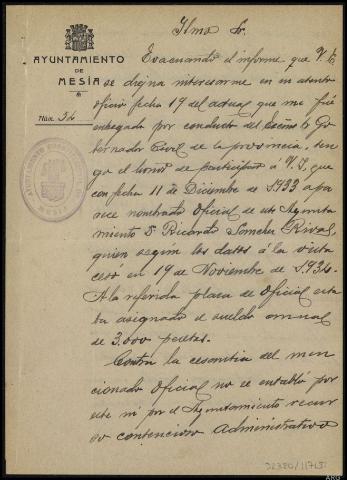 Ilmo Sr.
AYUNTAMIENTO
DE
MESÍA
Núm. 34
Evacuando el informe que V. I.
se digna interesarme en su atento
oficio fecha 19 del actual que me fué
entregado por conducto del Excmo Sr Go-
bernador Civil de la provincia, ten-
go el honor de participar á V. I. que
con fecha 11 de Diciembre de 1933 apa-
rece nombrado Oficial de este Ayunta-
miento D Ricardo Sanchez Rival,
quien según los datos á la vista
cesó en 19 de Noviembre de 1934.
A la referida plaza de Oficial esta
ba asignado el sueldo annual
de 3.000 pesetas.
Contra la cesantia del men-
cionado Oficial no se entabló por
este ni por el Ayuntamiento recur-
so contencioso administrativo
AYUNTAMIENTO
MESIA
ARG